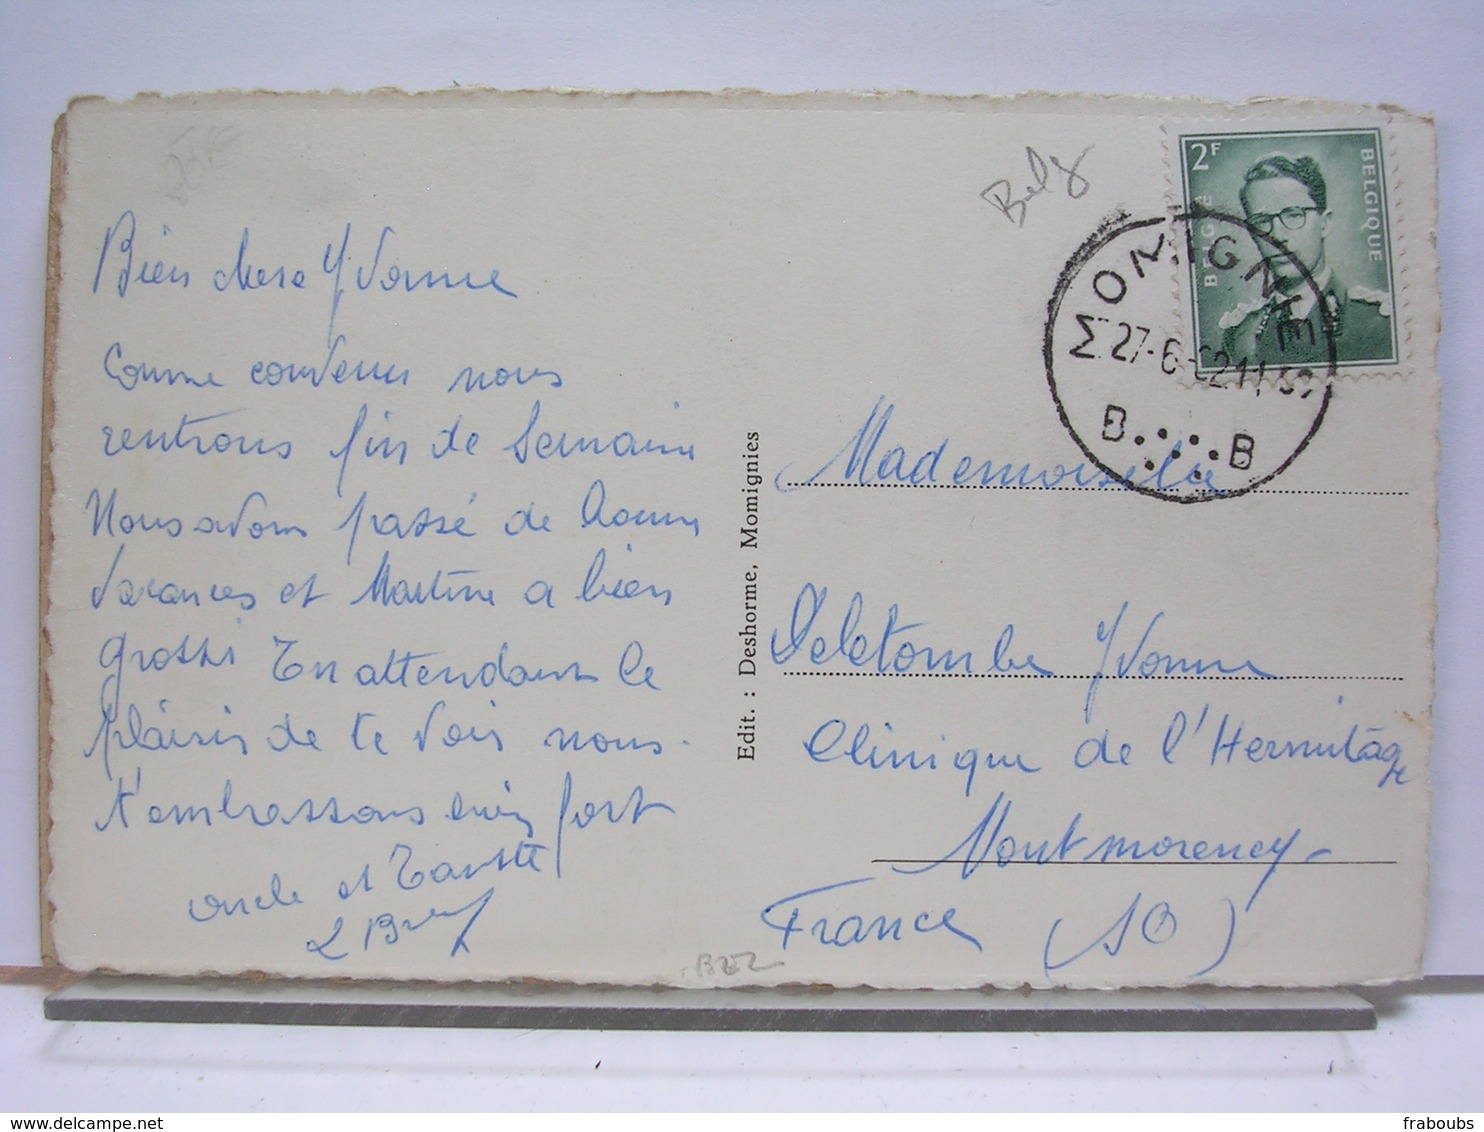 Belg
2F
BELGIQUE
BELGIE
MOMIGNIE
27-6
B B
Bien chere Yvonne
Comme convenu nous
rentrons fin de Semaine
Nous avons passé de bonnes
vacances et Martine a bien
grossi En attendant le
plaisir de te voir nous
t'embrassons bien fort
oncle et Tante
Edit. : Deshorme, Momignies
Mademoiselle
Deletombe Yvonne
Clinique de l'Hermitage
Montmorency
France (SO)
Delcampe.net
fraboubs